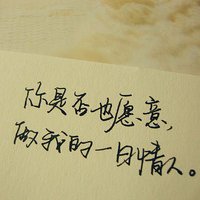 你是否也愿意，
做我的一日情人。